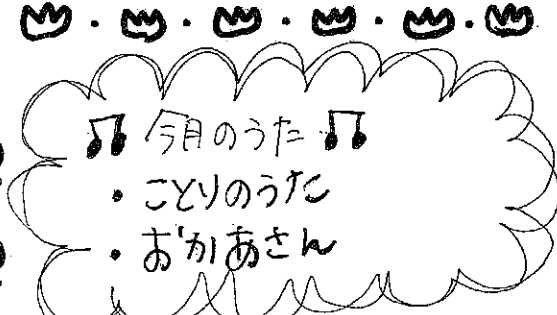 今月のうた
・ことりのうた
・おかあさん